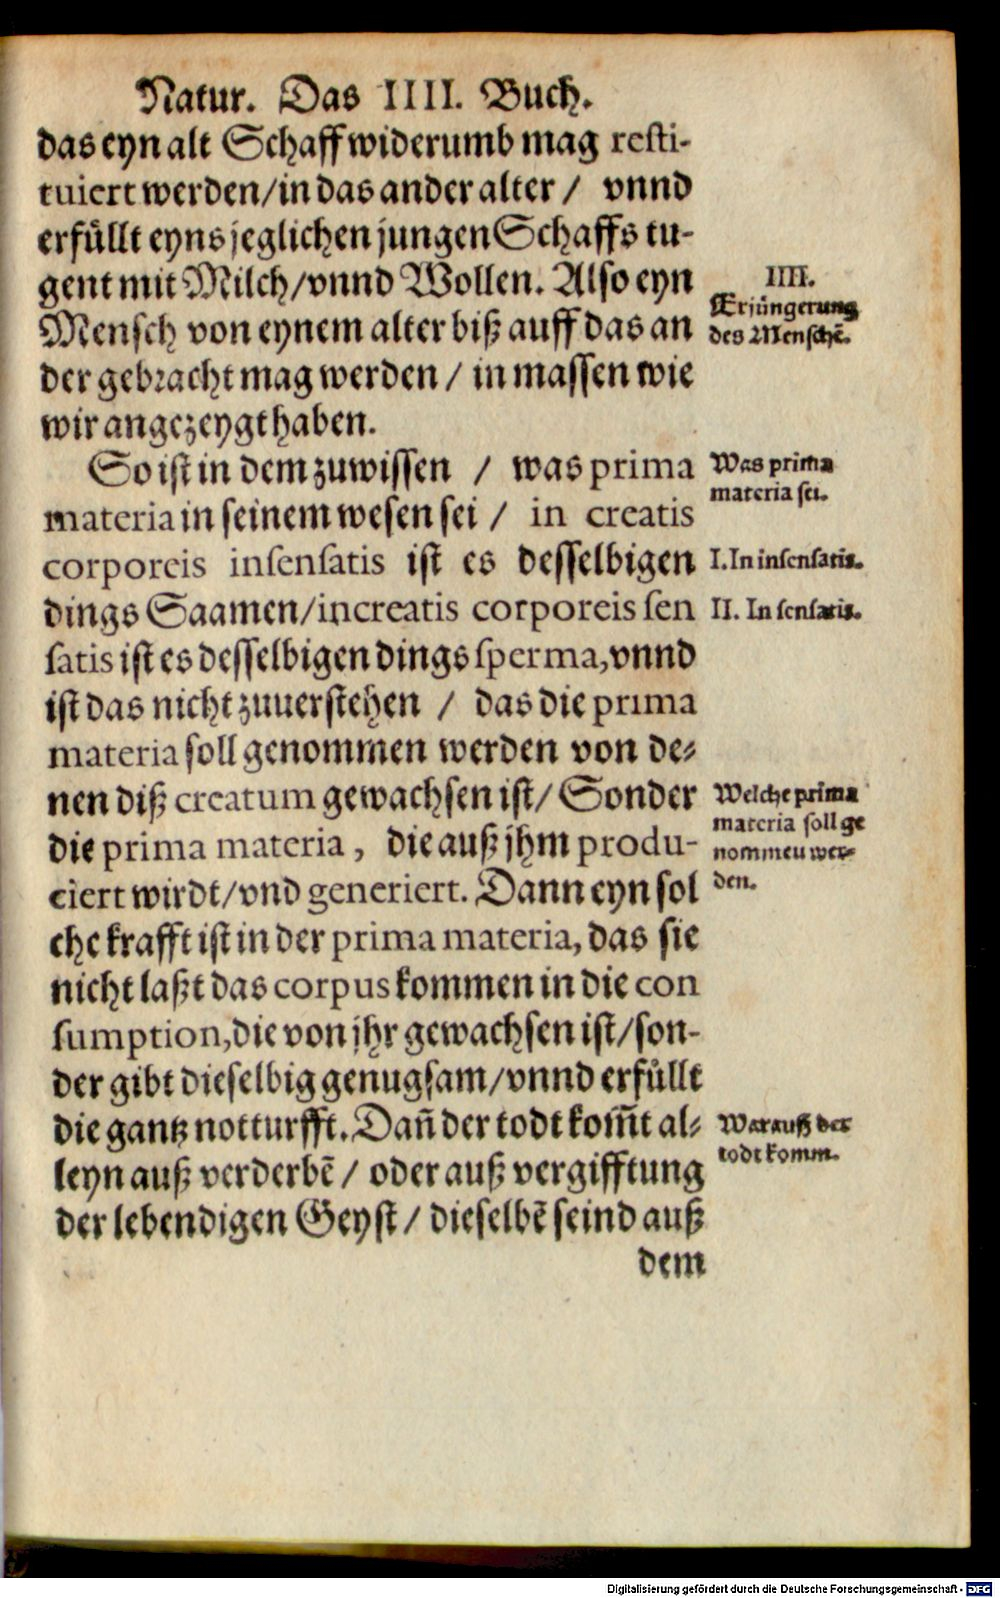 Natur. Das IIII. Buch.
das eyn alt Schaff widerumb mag resti-
tuiert werden/in das ander alter / vnnd
erfüllt eyns jeglichen jungen Schaffs tu-
gent mit Milch/vnnd Wollen. Also eyn
Mensch von eynem alter biß auff das an
der gebracht mag werden / in massen wie
wir angezeygt haben.
IIII.
Erjüngerung
des Menschē.
So ist in dem zuwissen / was prima
materia in seinem wesen sei / in creatis
corporeis insensatis ist es desselbigen
dings Saamen/increatis corporeis sen
satis ist es desselbigen dings sperma,vnnd
ist das nicht zuuerstehen / das die prima
materia soll genommen werden von de-
nen diß creatum gewachsen ist/ Sonder
die prima materia, die auß jhm produ-
ciert wirdt/vnd generiert. Dann eyn sol
che krafft ist in der prima materia, das sie
nicht laßt das corpus kommen in die con
sumption,die von jhr gewachsen ist/son-
der gibt dieselbig genugsam/vnnd erfüllt
die gantz notturfft. Dañ der todt kom̄t al-
leyn auß verderbē / oder auß vergifftung
der lebendigen Geyst / dieselbē seind auß
dem
Was prima
materia sei.
I. In insensatis.
II. In sensatis.
Welche prima
materia soll ge
nommeu wer-
den.
Warauß der
todt komm.
Digitalisierung gefördert durch die Deutsche Forschungsgemeinschaft - DFG